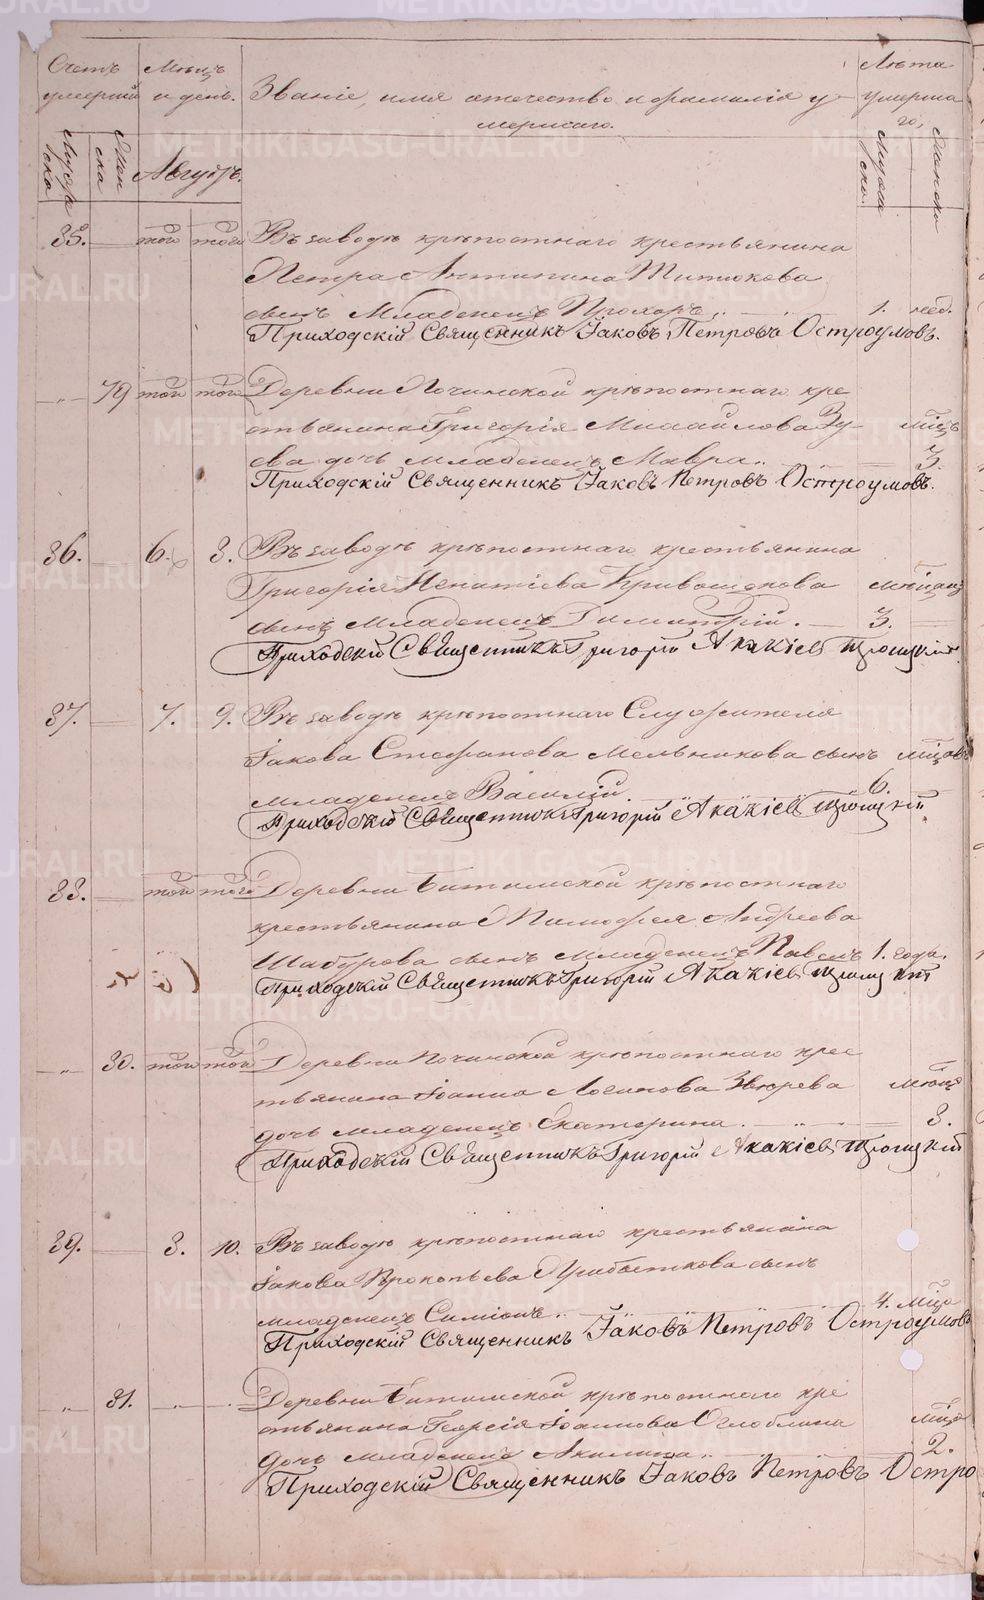 Счетъ умершихъ
Мѣсяцъ и день.
Званіе, имя отечество и фамилія у-
мершаго.
Лѣта умерша
го,
Мужска
Женска
Августъ.
Мужска
Женска
85. — того того Въ заводѣ крѣпостнаго крестьянина
Петра Антипина Титюкова
сынъ Младенецъ Прохоръ. 1. нед.
Приходскій Священникъ Іаковъ Петровъ Остроумовъ.
—„— 79 того того Деревни Починской крѣпостнаго кре
стьянина Григорія Михайлова Зу- мѣсц
ева дочь младенецъ Мавра. — 3.
Приходскій Священникъ Іаковъ Петровъ Остроумовъ.
86. — 6. 8. Въ заводѣ крѣпостнаго крестьянина
Григорія Игнатіева Кривощокова мѣсяц
сынъ Младенецъ Димитрій. — 3.
Приходскій Священникъ Григорій Акакіевъ Троицкій.
87. — 7. 9. Въ заводѣ крѣпостнаго Служителя
Іакова Стефанова Мельникова сынъ мѣсцовъ
младенецъ Василій 6.
Приходскій Священникъ Григорій Акакіевъ Троицкій
88. — того того Деревни Битимской крѣпостнаго
крестьянина Тимофея Андреева
Шабурова сынъ Младенецъ Павелъ 1. года.
Приходскій Священникъ Григорій Акакіевъ Троицкій
—„— 80. того того Деревни Починской крѣпостнаго крес
тьянина Іоанна Логинова Звѣрева мѣсяц
дочь младенецъ Екатерина. — 8.
Приходскій Священникъ Григорій Акакіевъ Троицкій
89. — 8. 10. Въ заводѣ крѣпостнаго крестьянина
Іакова Прокопьева сынъ
младенецъ Симіонъ. 4. мѣсц
Приходскій Священникъ Іаковъ Петровъ Остроумовъ
—„— 81. —„— Деревни Битимской крѣпостнаго кре
стьянина Георгія Іоаннова Оглоблина мѣсц
дочь младенецъ Акилина. 2.
Приходскій Священникъ Іаковъ Петровъ Остро
METRIKI.GASO-URAL.RU